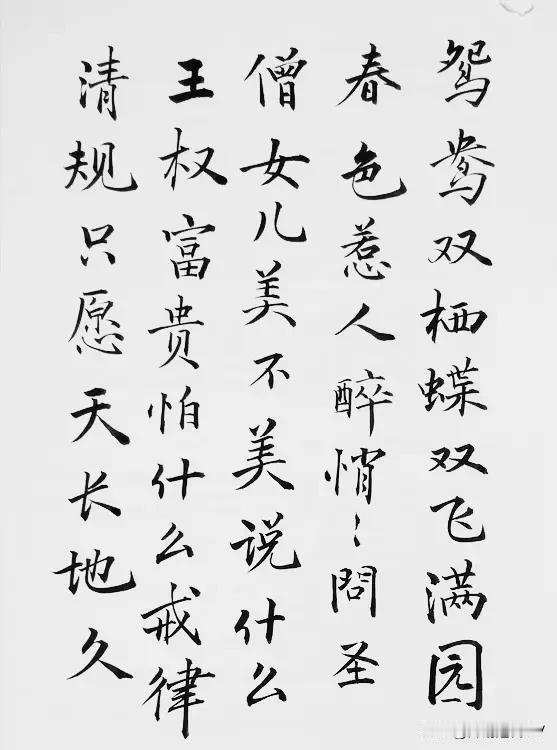 鸳鸯双栖蝶双飞满园
春色惹人醉悄〻問圣
僧女儿美不美说什么
王权富贵怕什么戒律
清规只愿天长地久